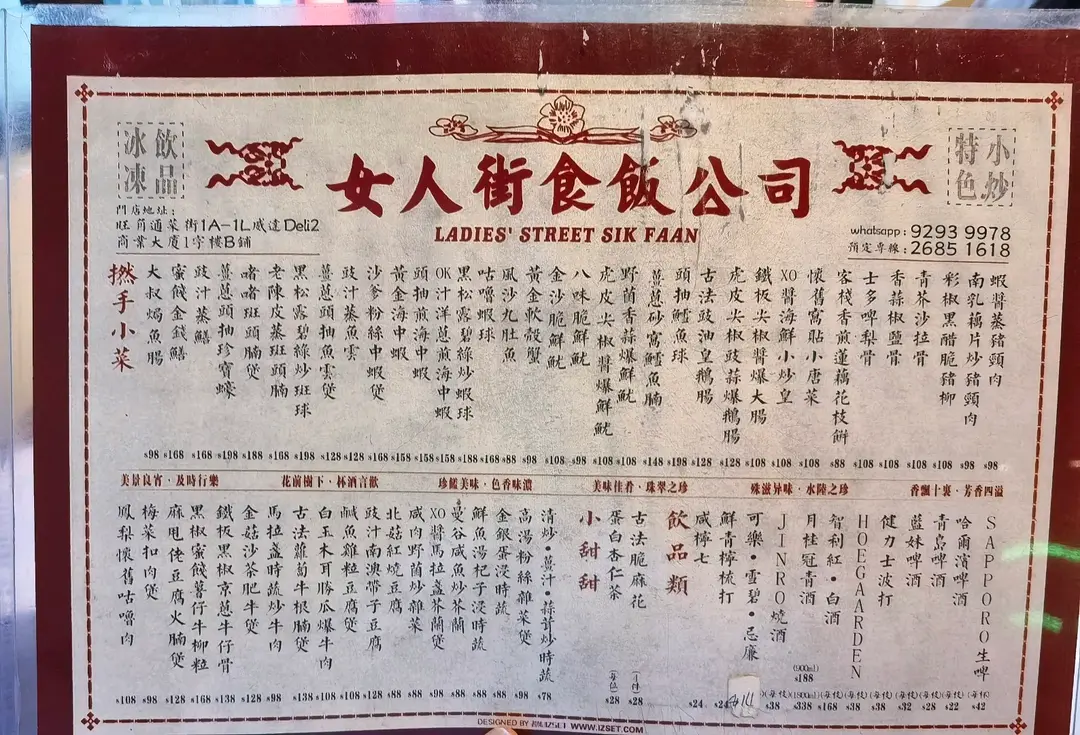 冰凍飲品
女人街食飯公司
LADIES' STREET SIK FAAN
特色小炒
門店地址：
旺角通菜街1A-1L威達Deli2
商業大廈1字樓B鋪
whatsapp : 9293 9978
預定專線 : 2685 1618
撚手小菜
大叔焗魚腸 $98
蜜餞金錢鱔 $168
豉汁蒸鱔 $168
薑蔥頭抽珍寶蠔 $198
啫啫斑頭腩煲 $188
老陳皮蒸斑頭腩 $168
黑松露碧綠炒斑球 $198
薑蔥頭抽魚雲煲 $128
豉汁蒸魚雲 $128
沙爹粉絲中蝦煲 $168
黃金海中蝦 $158
頭抽煎海中蝦 $158
OK汁洋蔥煎海中蝦 $158
黑松露碧綠炒蝦球 $188
咕嚕蝦球 $168
風沙九肚魚 $88
黃金軟殼蟹 $98
金沙脆鮮魷 $108
八味脆鮮魷 $98
虎皮尖椒醬爆鮮魷 $108
野菌香蒜爆鮮魷 $108
薑蔥砂窩鱈魚腩 $148
頭抽鱈魚球 $198
古法豉油皇鵝腸 $128
虎皮尖椒豉蒜爆鵝腸 $128
鐵板尖椒醬爆大腸 $108
XO醬海鮮小炒皇 $108
懷舊窩貼小唐菜 $108
客棧香煎蓮藕花枝餅 $88
士多啤梨骨 $108
香蒜椒鹽骨 $108
青芥沙拉骨 $108
彩椒黑醋脆豬柳 $108
南乳藕片炒豬頸肉 $98
蝦醬蒸豬頸肉 $98
美景良宵·及時行樂
花前樹下·杯酒言歡
珍饈美味·色香味濃
美味佳肴·珠翠之珍
殊滋异味·水陸之珍
香飄十裏·芳香四溢
鳳梨懷舊咕嚕肉 $108
梅菜扣肉煲 $98
麻甩佬豆腐火腩煲 $128
黑椒蜜餞薯仔牛柳粒 $168
鐵板黑椒京蔥牛仔骨 $138
金菇沙茶肥牛煲 $128
馬拉盞時蔬炒牛肉 $98
古法蘿蔔牛根腩煲 $138
白玉木耳勝瓜爆牛肉 $108
鹹魚雞粒豆腐煲 $108
豉汁南澳帶子豆腐 $128
北菇紅燒豆腐 $88
咸肉野菌炒雜菜 $88
XO醬馬拉盞芥蘭煲 $98
曼谷咸魚炒芥蘭 $88
鮮魚湯杞子浸時蔬 $88
金銀蛋浸時蔬 $88
高湯粉絲雜菜煲 $98
清炒•薑汁•蒜茸炒時蔬 $78
小甜甜
蛋白杏仁茶 (每位) $28
古法脆麻花 (1件) $28
飲品類
咸檸七 $24
鮮青檸梳打 $24
可樂•雪碧•忌廉
JINRO燒酒 $38
月桂冠青酒 (900ml) $188 (1800ml) $338
智利紅•白酒 (每枝) $168
HOEGAARDEN (每枝) $38
健力士波打 (每枝) $38
藍妹啤酒 (每枝) $32
青島啤酒 (每枝) $28
哈爾濱啤酒 (每枝) $22
SAPPORO生啤 (每杯) $42
DESIGNED BY IZSET WWW.IZSET.COM